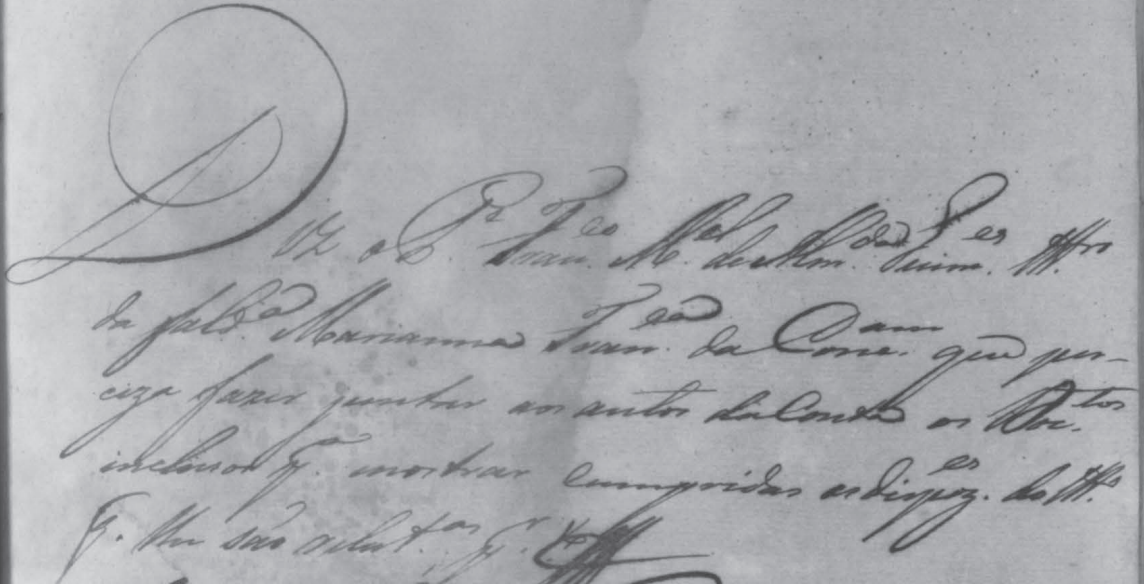 Diz o P.e Fran.co M.el de Alm.da Guim.es Ttr.o
da falb.a Marianna Fran.ca da Conc.am que per-
ciza fazer juntar aos autos da Conta os Doc.tos
inclusos p.a mostrar cumpridas as dispoz.es do Tt.o
q. lhe são relat.as p.r